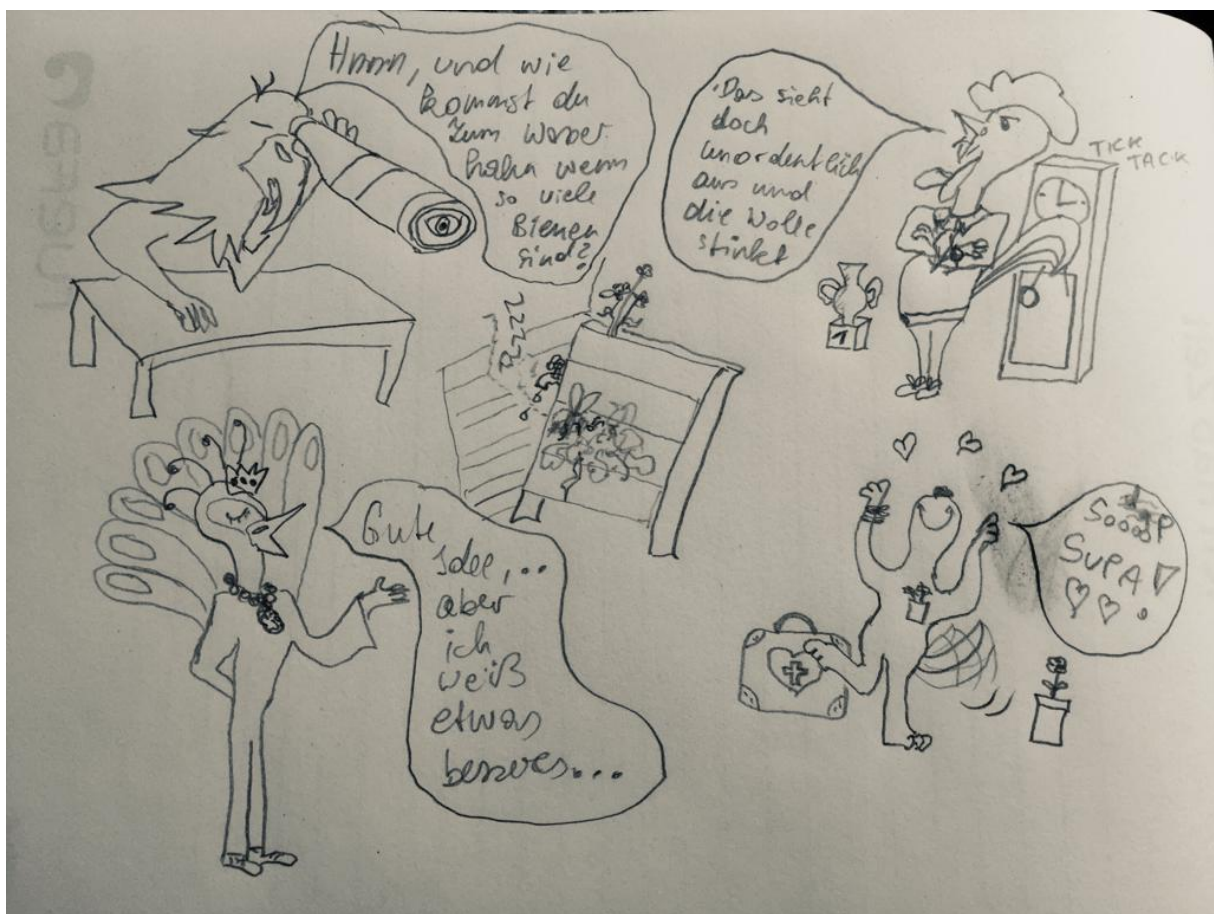 Hmm, und wie
kommst du
zum Wasser
hahn wenn
so viele
Bienen
sind?
Das sieht
doch
unordentlich
aus und
die Wolle
stinkt
TICK
TACK
ZZZZZ
1
Gute
Idee,..
aber
ich
weiß
etwas
besseres...
SUPA